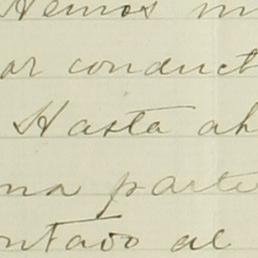 Hemos m
or conduct
Hasta ah
na parte
ontado al